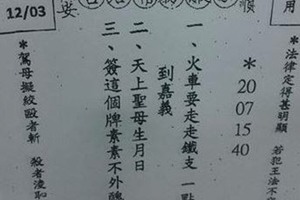 12/03
安
順
用
＊法律定得甚明顯 若犯王法不
＊
20
07
15
40
一、火車要走走鐵支 一點
到嘉義
二、天上聖母生月日
三、簽這個牌素素不外醜
＊駕母擬絞毆者斬 殺者凌恥